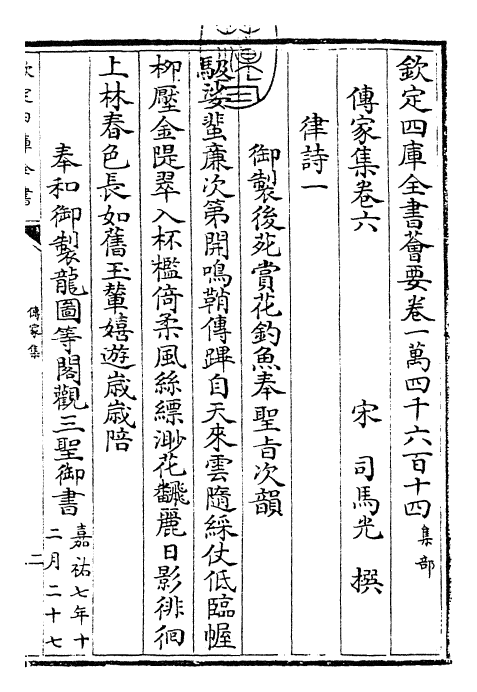 欽定四庫全書薈要卷一萬四千六百十四 集部
傳家集卷六 宋 司馬光 撰
律詩一
御製後苑賞花釣魚奉聖旨次韻
馺娑蜚廉次第開鳴鞘傳蹕自天來雲隨綵仗低臨幄
柳壓金隄翠入杯檻倚柔風絲縹渺花飜麗日影徘徊
上林春色長如舊玉輦嬉遊歳歳陪
奉和御製龍圖等閣觀三聖御書 嘉祐七年十二月二十七
欽定四庫全書
傳家集